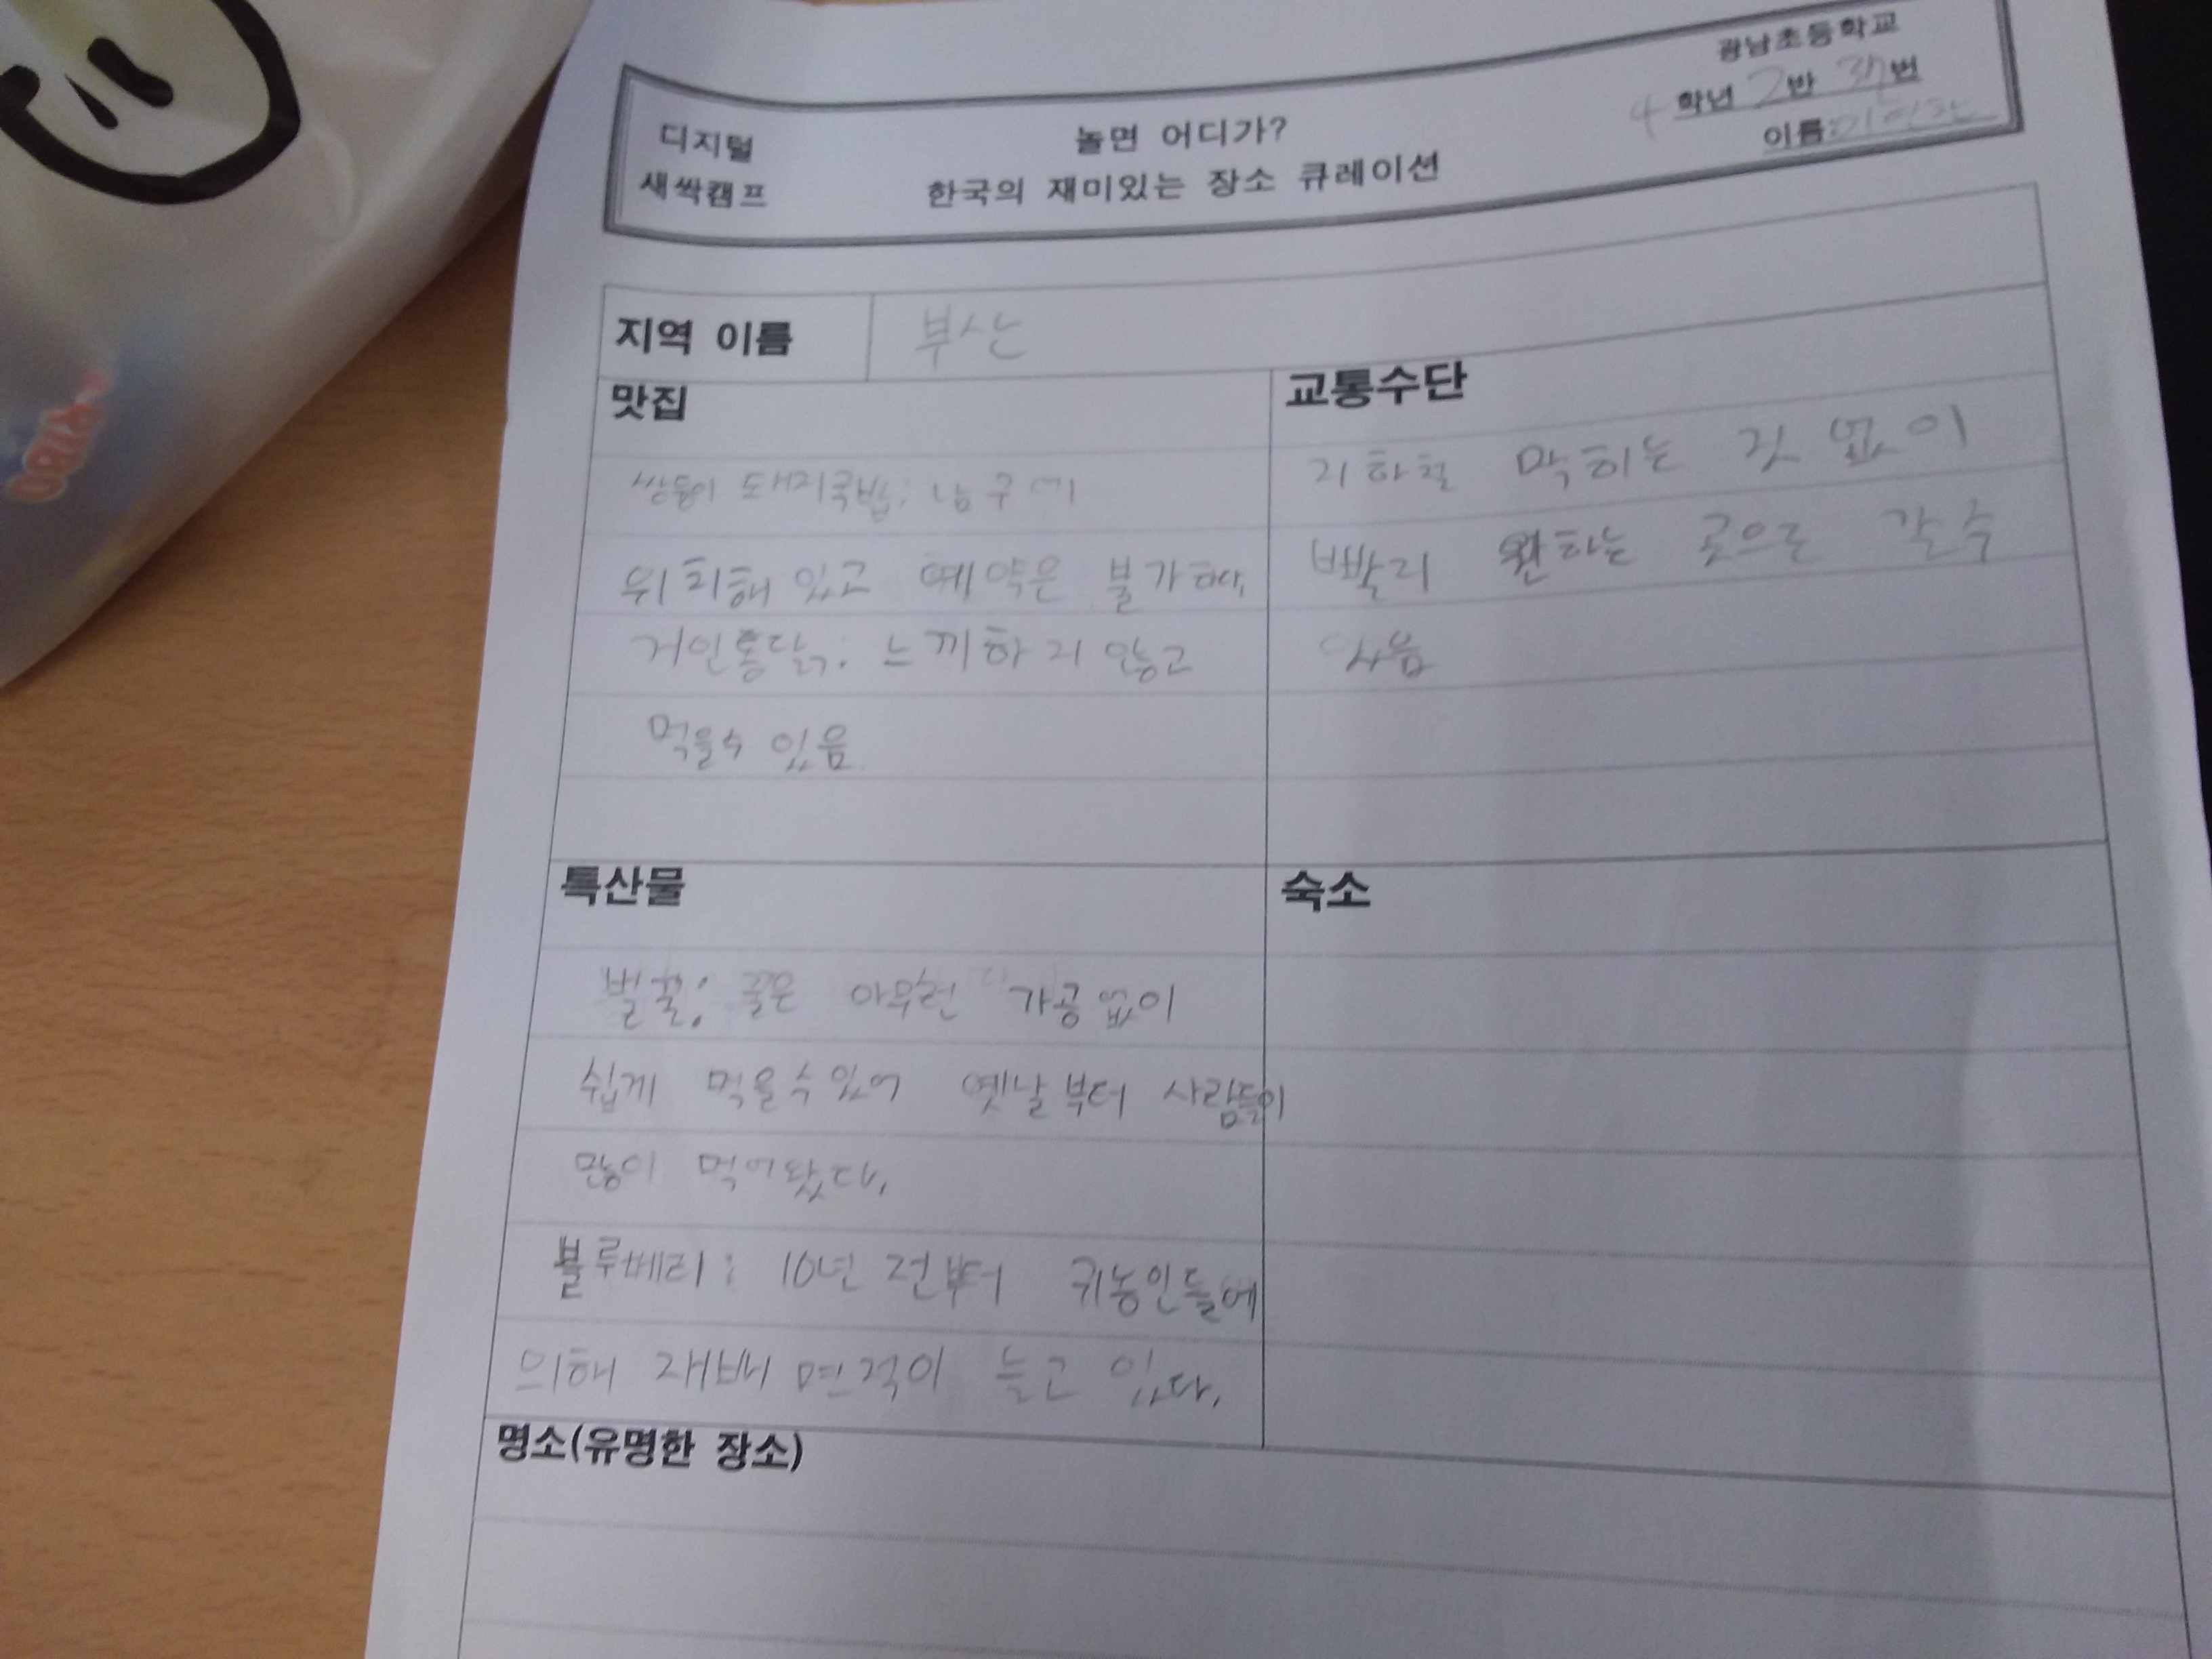 광남초등학교
4 학년 2반 번
이름:
디지털
새싹캠프
놀면 어디가?
한국의 재미있는 장소 큐레이션
지역 이름 부산
맛집
쌍둥이 돼지국밥: 남구에
위치해 있고 예약은 불가해,
거인통닭: 느끼하지 않고
먹을수 있음
교통수단
지하철 막히는 것 없이
빨리 원하는 곳으로 갈 수
있음
특산물
벌꿀: 꿀은 아무런 가공없이
쉽게 먹을수있어 옛날부터 사람들이
많이 먹어왔다,
블루베리: 10년 전부터 귀농인들에
의해 재배 면적이 늘고 있다,
숙소
명소(유명한 장소)